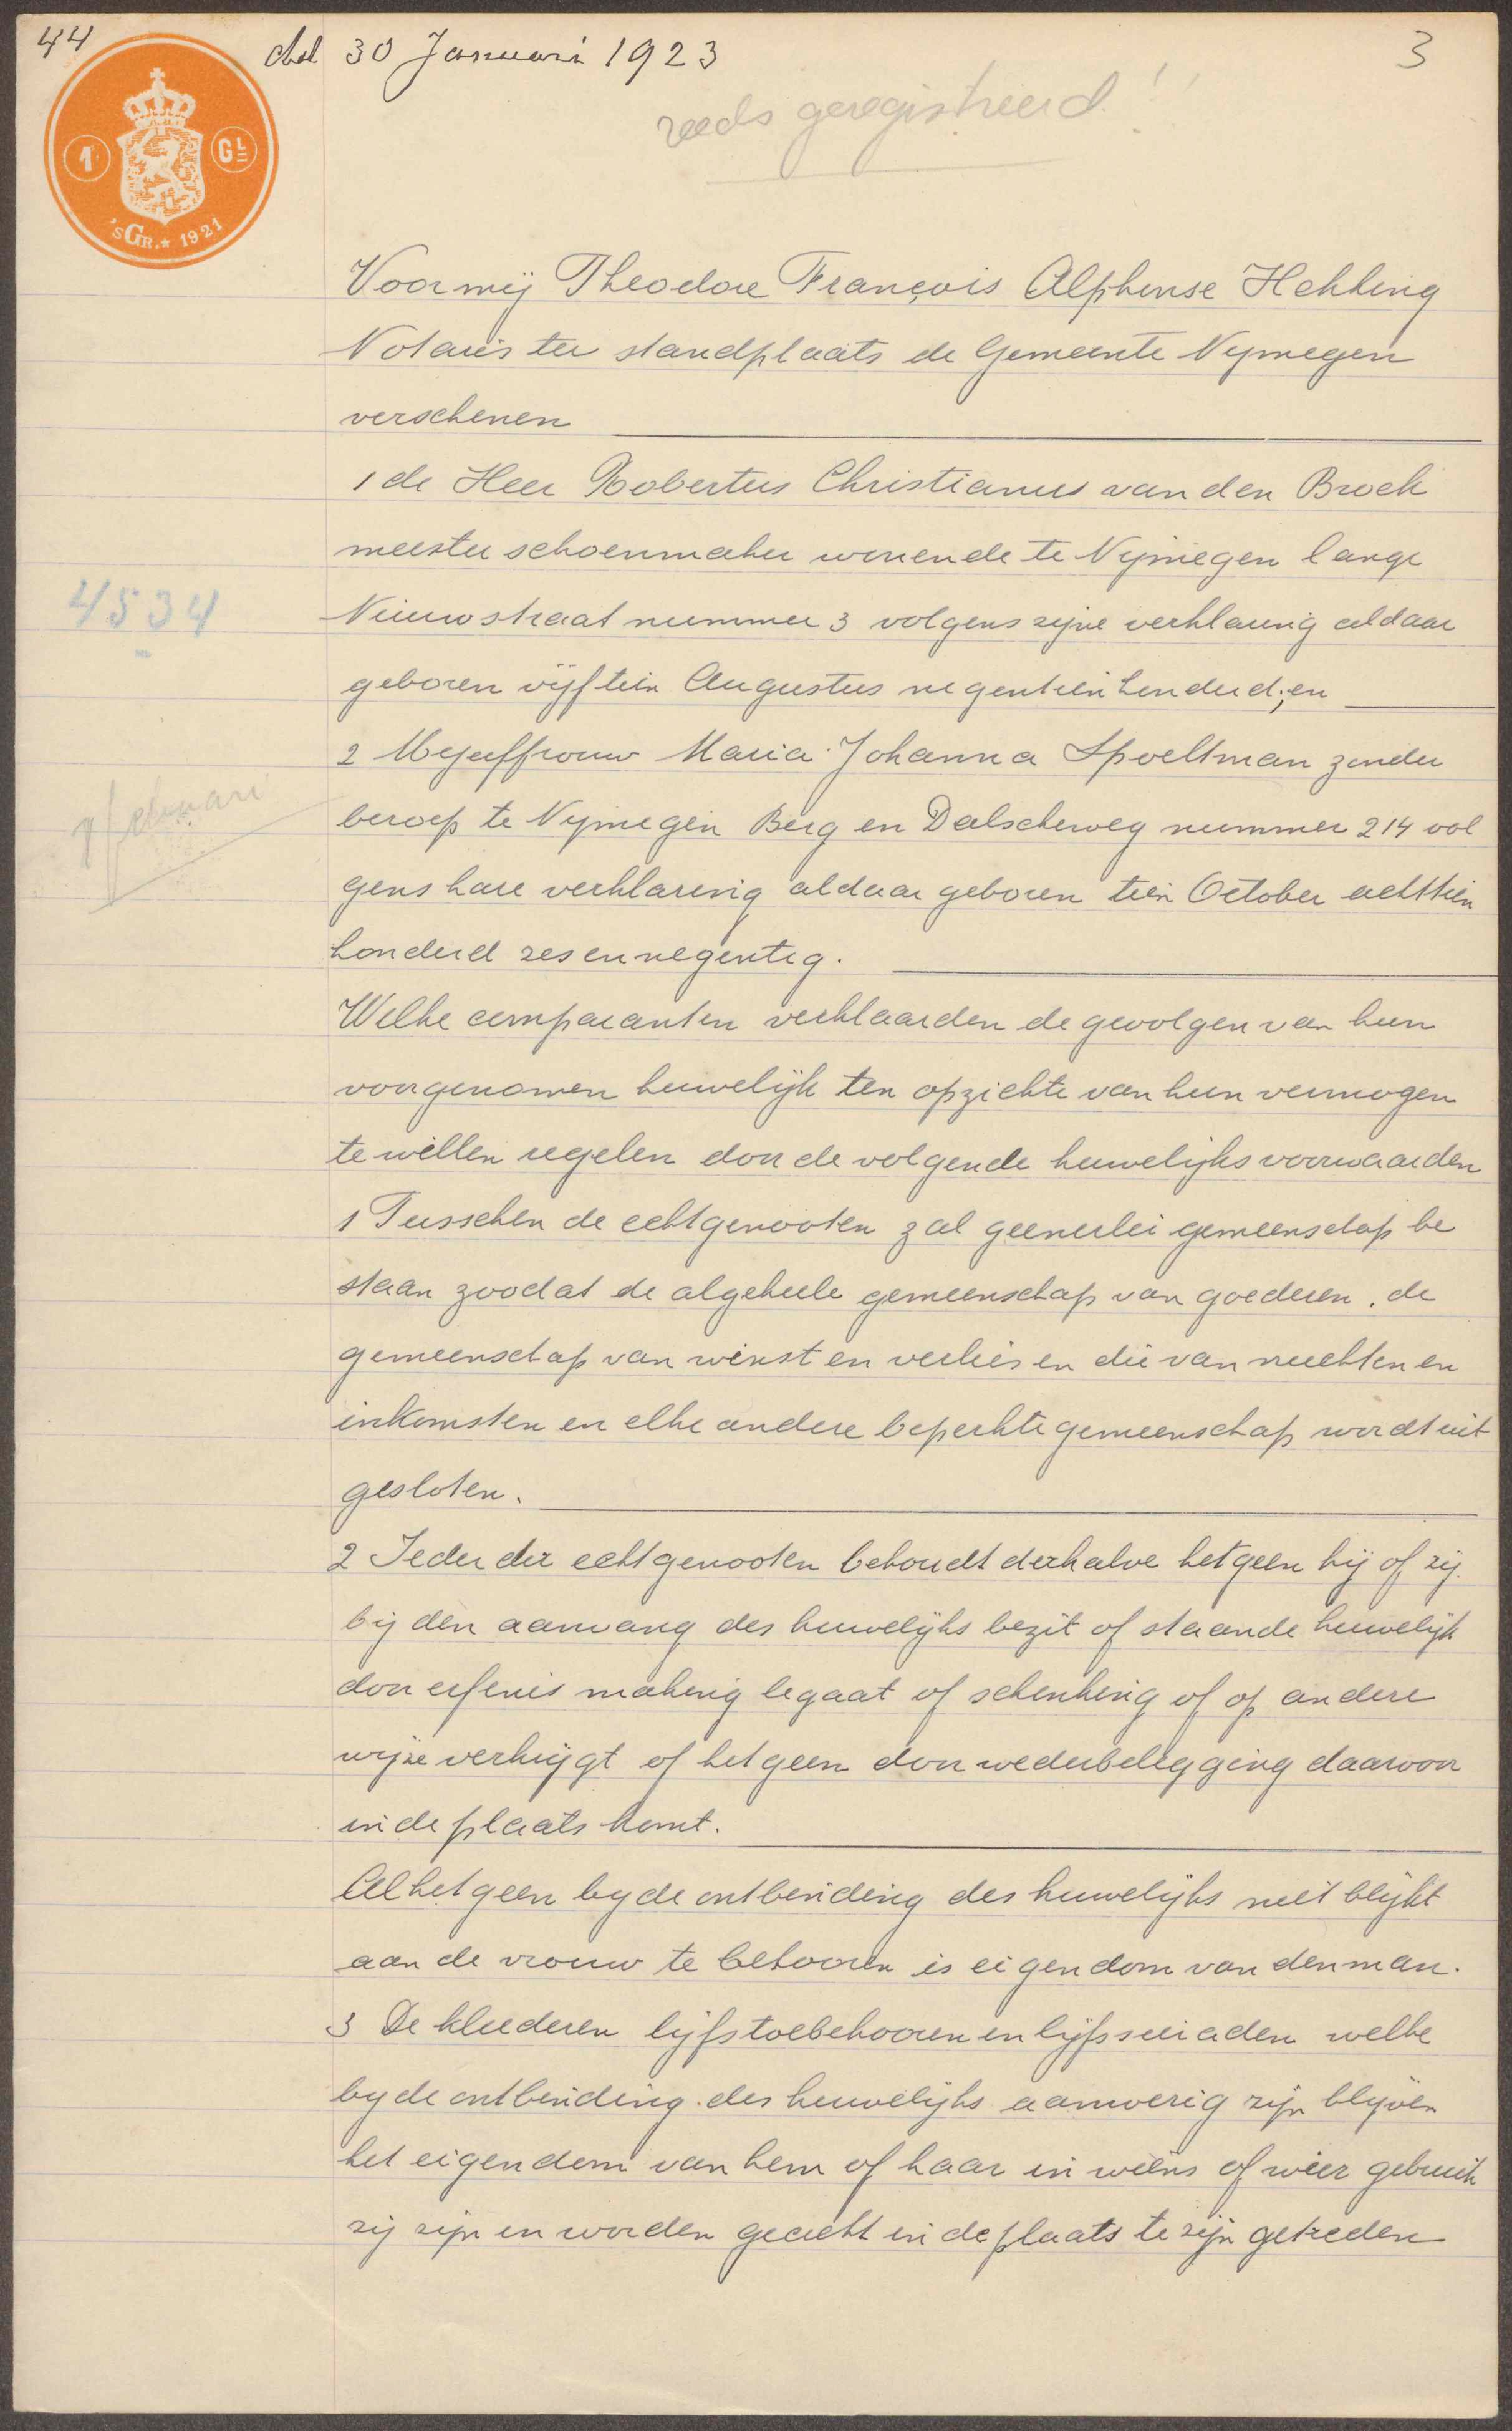 44
dd 30 Januari 1923
3
reeds geregistreerd!!
1 GL
'sGR.* 1921
Voor mij Theodore François Alphonse Hekking
Notaris ter standplaats de Gemeente Nijmegen
verschenen
1 de Heer Robertus Christianus van den Broek
meester schoenmaker wonende te Nijmegen lange
Nieuwstraat nummer 3 volgens zijne verklaring aldaar
4534
geboren vijftien Augustus negentienhonderd; en
2 Mejuffrouw Maria Johanna Spoeltman zonder
februari
beroep te Nijmegen Berg en Dalscheweg nummer 214 vol
gens hare verklaring aldaar geboren tien October achttien
honderd zesennegentig.
Welke comparanten verklaarden de gevolgen van hun
voorgenomen huwelijk ten opzichte van hun vermogen
te willen regelen door de volgende huwelijksvoorwaarden
1 Tusschen de echtgenooten zal geenerlei gemeenschap be
staan zoodat de algeheele gemeenschap van goederen, de
gemeenschap van winst en verlies en die van vruchten en
inkomsten en elke andere beperkte gemeenschap wordt uit
gesloten.
2 Ieder der echtgenooten behoudt derhalve hetgeen hij of zij
bij den aanvang des huwelijks bezit of staande huwelijk
door erfenis making legaat of schenking of op andere
wijze verkrijgt of hetgeen door wederbelegging daarvoor
in de plaats komt.
Al hetgeen bij de ontbinding des huwelijks niet blijkt
aan de vrouw te behooren is eigendom van den man.
3 De kleederen lijfstoebehooren en lijfssieraden welke
bij de ontbinding des huwelijks aanwezig zijn blijven
het eigendom van hem of haar in wiens of wier gebruik
zij zijn en worden geacht in de plaats te zijn getreden